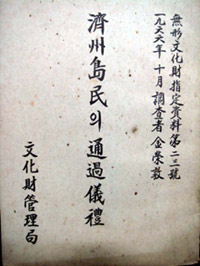 無形文化財指定資料第二三號
一九六六年 十月 調査者 金榮敦
濟州島民의 通過儀禮
文化財管理局